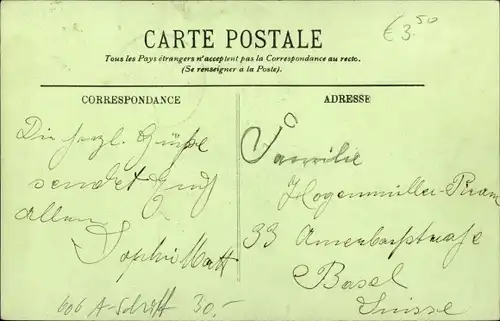 €3.50
CARTE POSTALE
Tous les Pays étrangers n'acceptent pas la Correspondance au recto.
(Se renseigner à la Poste).
CORRESPONDANCE
ADRESSE
Die herzl. Grüße
sendet Euch
Allen
Sophie Matt
Familie
Hogenmüller-Piram
33 Amerbachstraße
Basel
Suisse
606 A-Schrift 30.-